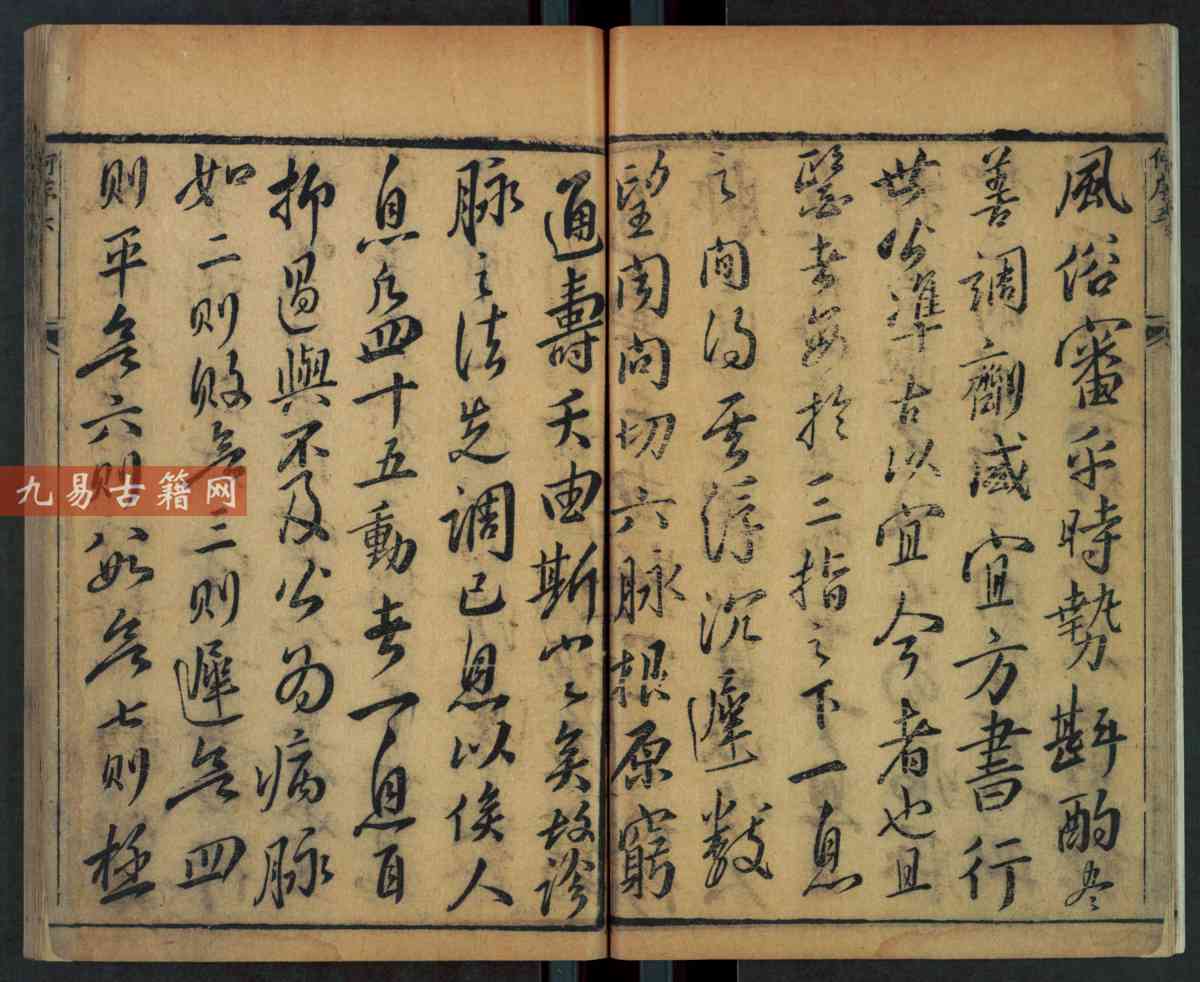 風俗審乎時勢斟酌盡
善調劑咸宜方書行
世準古以宜今者也且
醫者於三指之下一息
之間得其浮沉遲數
望聞問切六脉根原窮
通壽夭由斯矣故診
脉之法先調己息以候人
息凡四十五動一息
抑過與不及為病脉
如二則敗三則遲四
則平六則七則極
九易古籍网